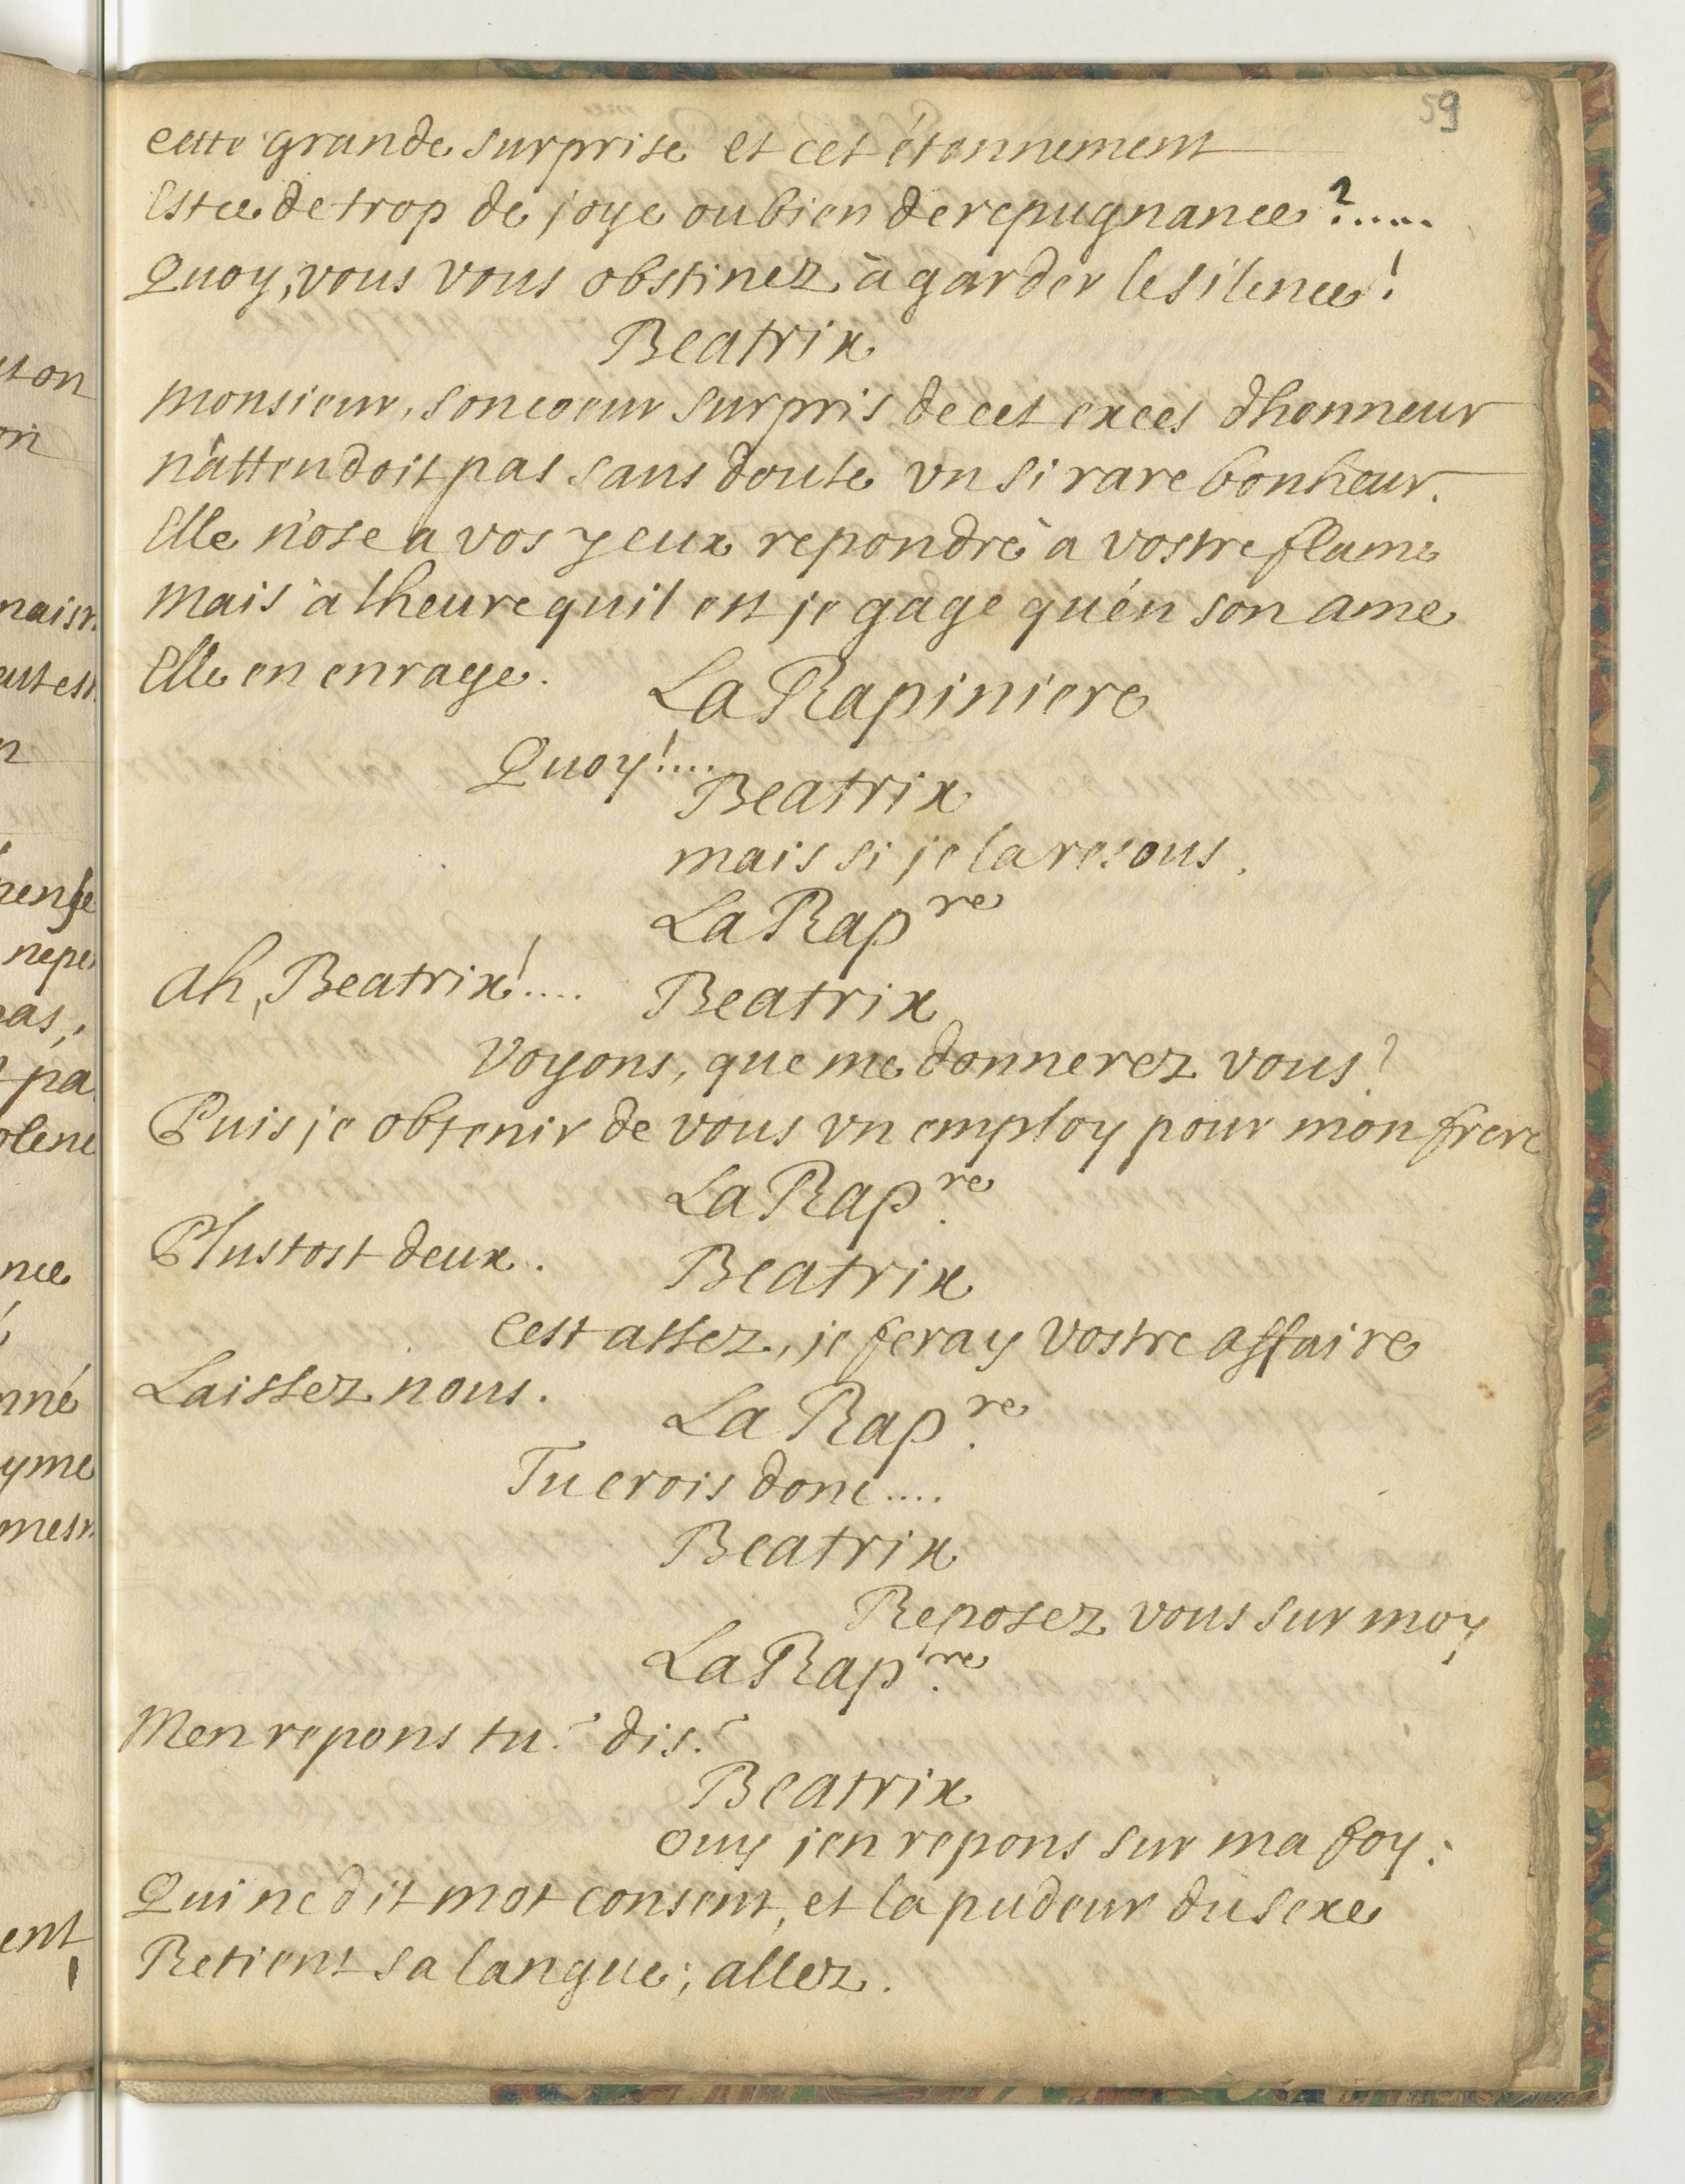 59
cette grande surprise et cet étonnement
Est ce de trop de joye ou bien de repugnance ?.....
Quoy, vous vous obstinez à garder le silence !
Beatrix
Monsieur, son coeur surpris de cet exces dhonneur
n'attendoit pas sans doute vn si rare bonheur.
Elle n'ose a vos yeux repondre a vostre flame
Mais à lheure quil est je gage qu'en son ame
Elle en enrage.
La Rapiniere
Quoy !....
Beatrix
mais si je la resous.
La Rap^re
Ah, Beatrix !....
Beatrix
Voyons, que me donnerez vous ?
Puis je obtenir de vous vn employ pour mon frere
La Rap^re.
Plustost deux.
Beatrix
Cest assez, je feray vostre affaire
Laissez nous.
La Rap^re.
Tu crois donc....
Beatrix
Reposez vous sur moy
La Rap^re.
Men repons tu ? dis ?
Beatrix
Ouy jen repons sur ma foy :
Qui ne dit mot consent, et la pudeur du sexe
Retient sa langue ; allez.